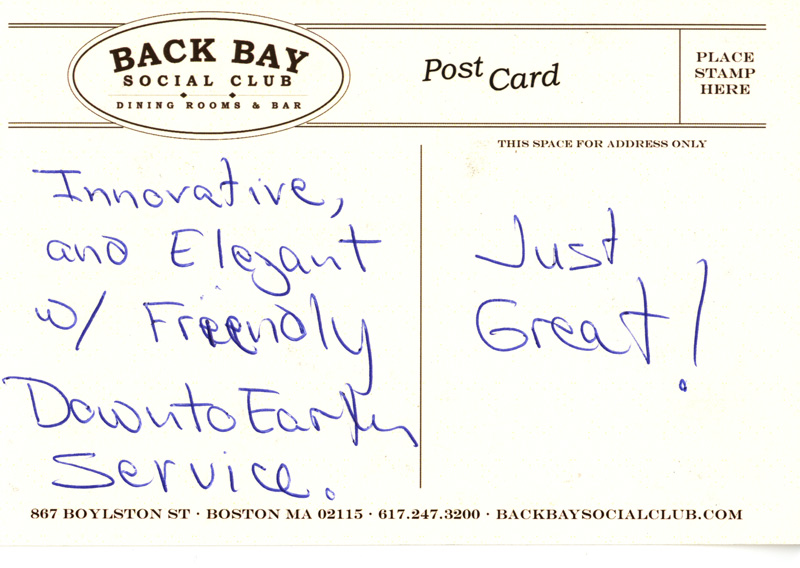 BACK BAY
SOCIAL CLUB
DINING ROOMS & BAR
Post Card
PLACE
STAMP
HERE
THIS SPACE FOR ADDRESS ONLY
Innovative,
and Elegant
w/ Friendly
Down to Earth
Service.
Just
Great!
867 BOYLSTON ST · BOSTON MA 02115 · 617.247.3200 · BACKBAYSOCIALCLUB.COM